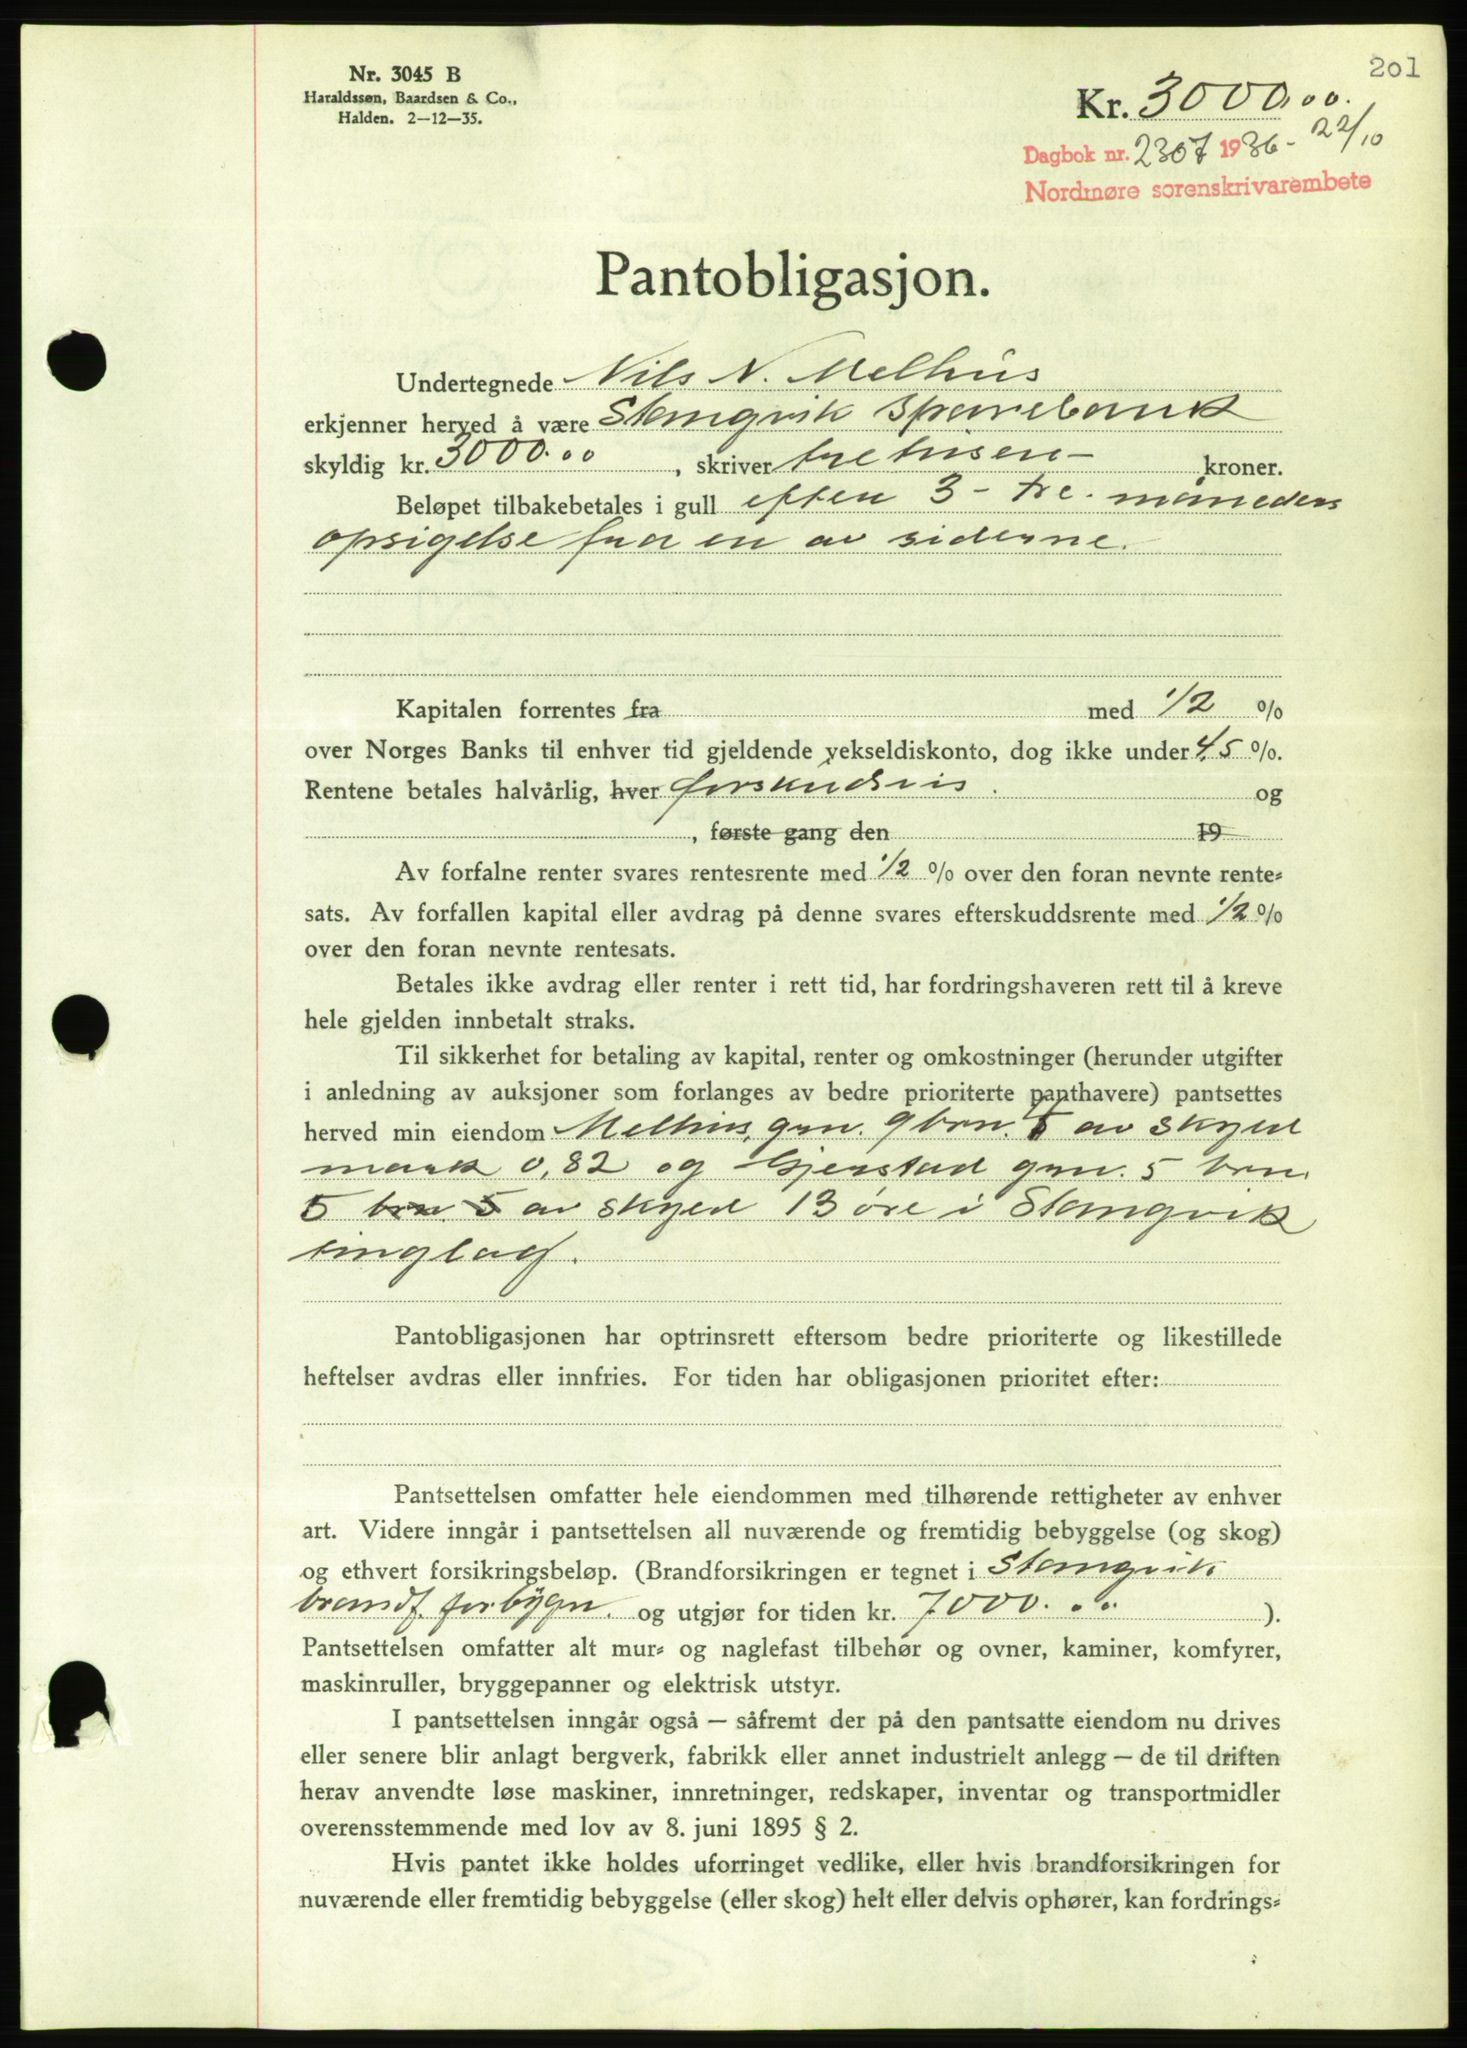 201
Nr. 3045 B
Haraldssøn, Baardsen & Co.,
Halden. 2-12-35.
Kr. 3000.00.
Dagbok nr. 2307 1936 - 22/10
Nordmøre sorenskrivarembete
Pantobligasjon.
Undertegnede Nils N. Melhus
erkjenner herved å være Stangvik Sparebank
skyldig kr. 3000.00, skriver tretusen- kroner.
Beløpet tilbakebetales i gull efter 3 - tre. måneders
opsigelse fra en av siderne.
Kapitalen forrentes fra med 1/2 %
over Norges Banks til enhver tid gjeldende vekseldiskonto, dog ikke under 4,5 %.
Rentene betales halvårlig, hver forskudsvis. og
, første gang den 19
Av forfalne renter svares rentesrente med 1/2 % over den foran nevnte rente-
sats. Av forfallen kapital eller avdrag på denne svares efterskuddsrente med 1/2 %
over den foran nevnte rentesats.
Betales ikke avdrag eller renter i rett tid, har fordringshaveren rett til å kreve
hele gjelden innbetalt straks.
Til sikkerhet for betaling av kapital, renter og omkostninger (herunder utgifter
i anledning av auksjoner som forlanges av bedre prioriterte panthavere) pantsettes
herved min eiendom Melhus, gnr. 9 brn. av skyld
mark 0,82 og Gjerstad gnr. 5 brn.
5 brn. 5 av skyld 13 øre i Stangvik
tinglag.
Pantobligasjonen har optrinsrett eftersom bedre prioriterte og likestillede
heftelser avdras eller innfries. For tiden har obligasjonen prioritet efter:
Pantsettelsen omfatter hele eiendommen med tilhørende rettigheter av enhver
art. Videre inngår i pantsettelsen all nuværende og fremtidig bebyggelse (og skog)
og ethvert forsikringsbeløp. (Brandforsikringen er tegnet i Stangvik
brandf. forbygn. og utgjør for tiden kr. 7000.00 ).
Pantsettelsen omfatter alt mur- og naglefast tilbehør og ovner, kaminer, komfyrer,
maskinruller, bryggepanner og elektrisk utstyr.
I pantsettelsen inngår også — såfremt der på den pantsatte eiendom nu drives
eller senere blir anlagt bergverk, fabrikk eller annet industrielt anlegg — de til driften
herav anvendte løse maskiner, innretninger, redskaper, inventar og transportmidler
overensstemmende med lov av 8. juni 1895 § 2.
Hvis pantet ikke holdes uforringet vedlike, eller hvis brandforsikringen for
nuværende eller fremtidig bebyggelse (eller skog) helt eller delvis ophører, kan fordrings-